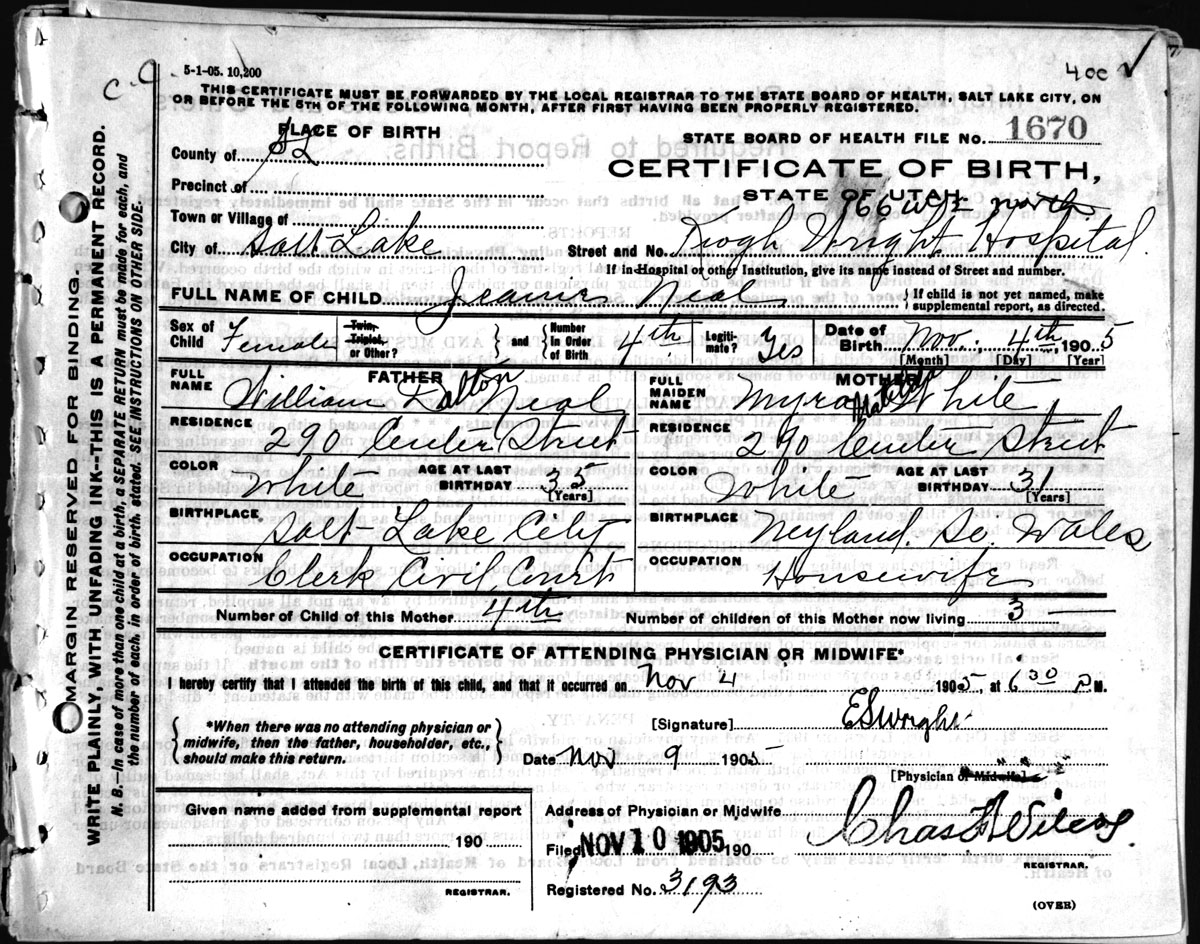 5-1-05. 10,200
400 ✓
THIS CERTIFICATE MUST BE FORWARDED BY THE LOCAL REGISTRAR TO THE STATE BOARD OF HEALTH, SALT LAKE CITY, ON
OR BEFORE THE 5TH OF THE FOLLOWING MONTH, AFTER FIRST HAVING BEEN PROPERLY REGISTERED.
PLACE OF BIRTH
STATE BOARD OF HEALTH FILE No. 1670
County of SL
CERTIFICATE OF BIRTH,
Precinct of
STATE OF UTAH
Town or Village of
166 W north
City of Salt Lake
Street and No. Keogh Wright Hospital
If in Hospital or other Institution, give its name instead of Street and number.
FULL NAME OF CHILD Neal
{ If child is not yet named, make supplemental report, as directed.
Sex of Child Female
Twin, Triplet, or Other?
} and { Number in Order of Birth 4th
Legitimate? Yes
Date of Birth Nov. 4th, 1905
[Month] [Day] [Year]
FATHER
FULL NAME William Dalton Neal
RESIDENCE 290 Center Street
COLOR White
AGE AT LAST BIRTHDAY 35 [Years]
BIRTHPLACE Salt Lake City
OCCUPATION Clerk Civil Court
MOTHER
FULL MAIDEN NAME Myra Matilda White
RESIDENCE 290 Center Street
COLOR White
AGE AT LAST BIRTHDAY 31 [Years]
BIRTHPLACE Neyland. So. Wales
OCCUPATION Housewife
Number of Child of this Mother 4th
Number of children of this Mother now living 3
CERTIFICATE OF ATTENDING PHYSICIAN OR MIDWIFE*
I hereby certify that I attended the birth of this child, and that it occurred on Nov 4 1905, at 6 30 P.M.
{ *When there was no attending physician or midwife, then the father, householder, etc., should make this return. }
[Signature] E S Wright
Date Nov. 9 1905
[Physician or Midwife]
Given name added from supplemental report
190
REGISTRAR.
Address of Physician or Midwife " " "
Filed, NOV 10 1905 190
Chas
REGISTRAR.
Registered No. 3193
(OVER)
MARGIN RESERVED FOR BINDING.
WRITE PLAINLY, WITH UNFADING INK--THIS IS A PERMANENT RECORD.
N. B.--In case of more than one child at a birth, a SEPARATE RETURN must be made for each, and
the number of each, in order of birth, stated. SEE INSTRUCTIONS ON OTHER SIDE.